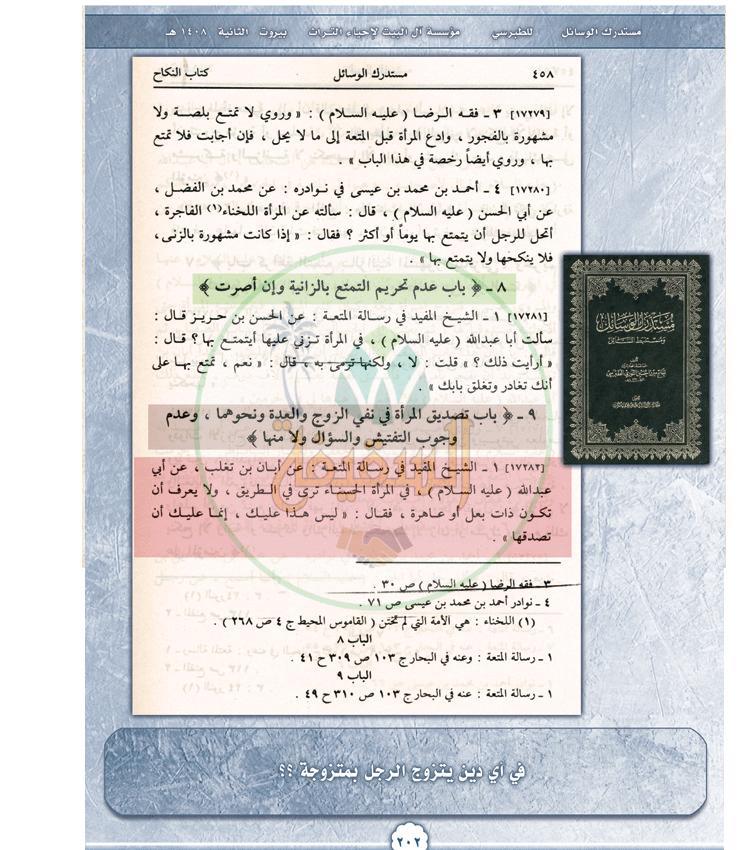 مستدرك الوسائل للطبرسي مؤسسة آل البيت لإحياء التراث بيروت الثانية ١٤٠٨ هـ
٤٥٨ مستدرك الوسائل كتاب النكاح
[١٧٢٧٩] ٣ ـ فقه الرضا ( عليه السلام ) : « وروي لا تمتع بلصة ولا
مشهورة بالفجور ، وادع المرأة قبل المتعة إلى ما لا يحل ، فإن أجابت فلا تمتع
بها ، وروي أيضاً رخصة في هذا الباب » .
[١٧٢٨٠] ٤ ـ أحمد بن محمد بن عيسى في نوادره : عن محمد بن الفضل ،
عن أبي الحسن ( عليه السلام ) ، قال : سألته عن المرأة اللخناء(١) الفاجرة ،
أتحل للرجل أن يتمتع بها يوماً أو أكثر ؟ فقال : « إذا كانت مشهورة بالزنى ،
فلا ينكحها ولا يتمتع بها » .
٨ ـ ﴿ باب عدم تحريم التمتع بالزانية وإن أصرت ﴾
[١٧٢٨١] ١ ـ الشيخ المفيد في رسالة المتعة : عن الحسن بن حريز قال :
سألت أبا عبدالله ( عليه السلام ) ، في المرأة تزني عليها أيتمتع بها ؟ قال :
« أرأيت ذلك ؟ » قلت : لا ، ولكنها ترمى به ، قال : « نعم ، تمتع بها على
أنك تغادر وتغلق بابك » .
٩ ـ ﴿ باب تصديق المرأة في نفي الزوج والعدة ونحوهما ، وعدم
وجوب التفتيش والسؤال ولا منها ﴾
[١٧٢٨٢] ١ ـ الشيخ المفيد في رسالة المتعة : عن أبان بن تغلب ، عن أبي
عبدالله ( عليه السلام ) ، في المرأة الحسناء ترى في الطريق ، ولا يعرف أن
تكون ذات بعل أو عاهرة ، فقال : « ليس هذا عليك ، إنما عليك أن
تصدقها » .
٣ ـ فقه الرضا ( عليه السلام ) ص ٣٠ .
٤ ـ نوادر أحمد بن محمد بن عيسى ص ٧١ .
(١) اللخناء : هي الأمة التي لم تختن ( القاموس المحيط ج ٤ ص ٢٦٨ ) .
الباب ٨
١ ـ رسالة المتعة : وعنه في البحار ج ١٠٣ ص ٣٠٩ ح ٤١ .
الباب ٩
١ ـ رسالة المتعة : عنه في البحار ج ١٠٣ ص ٣١٠ ح ٤٩ .
مستدرك الوسائل
ومستنبط المسائل
السقيفة
في أي دين يتزوج الرجل بمتزوجة ؟؟
٢٠٢